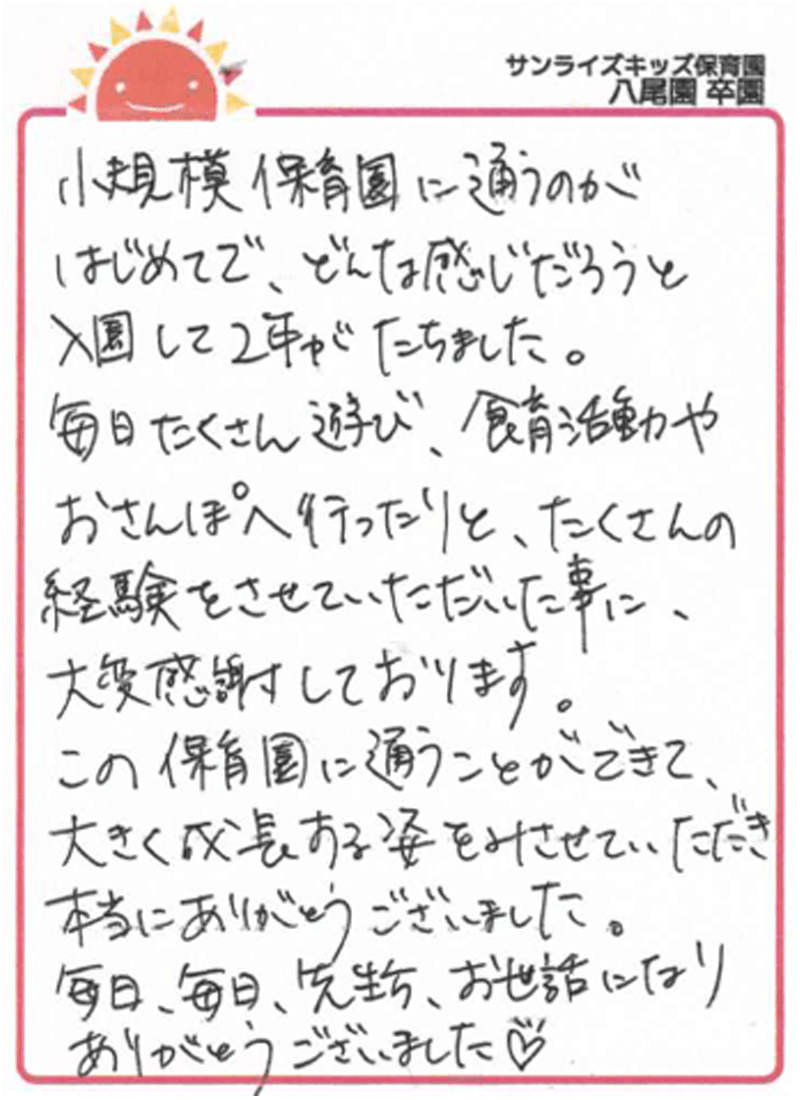 サンライズキッズ保育園
八尾園 卒園
小規模保育園に通うのが
はじめてで、どんな感じだろうと
入園して2年がたちました。
毎日たくさん遊び、食育活動や
おさんぽへ行ったりと、たくさんの
経験をさせていただいた事に、
大変感謝しております。
この保育園に通うことができて、
大きく成長する姿をみさせていただき
本当にありがとうございました。
毎日、毎日、先生方、お世話になり
ありがとうございました♡